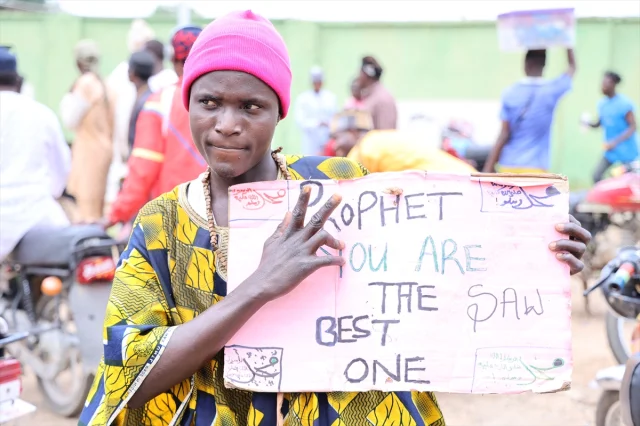 PROPHET
YOU ARE
THE SAW
BEST
ONE